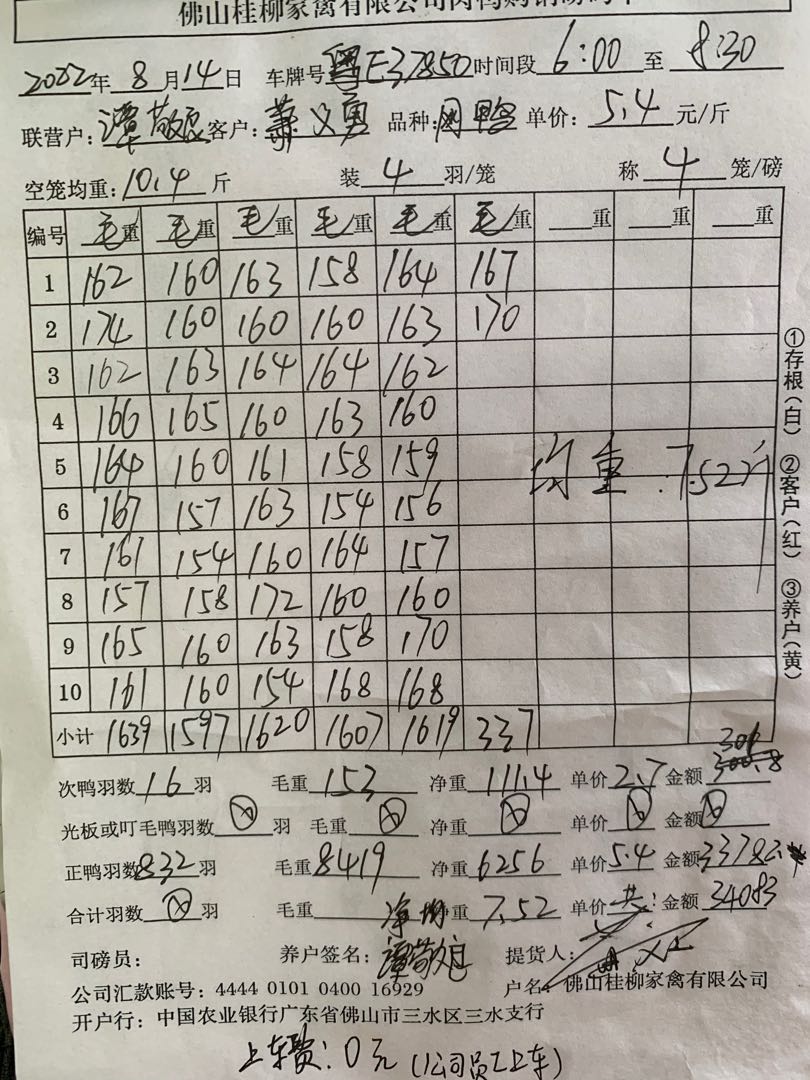 佛山桂柳家禽有限公司肉鸭购销磅码单
2022年 8月14日 车牌号 粤E37850 时间段 6:00 至 8:30
联营户: 谭敬 客户: 萧义勇 品种: 肉鸭 单价: 5.4 元/斤
空笼均重: 10.4 斤 装 4 羽/笼 称 4 笼/磅
编号 毛重 毛重 毛重 毛重 毛重 毛重 重 重 重
1 162 160 163 158 164 167
2 174 160 160 160 163 170
3 162 163 164 164 162
4 166 165 160 163 160
5 164 160 161 158 159 均重:7.52斤
6 167 157 163 154 156
7 161 154 160 164 157
8 157 158 172 160 160
9 165 160 163 158 170
10 161 160 154 168 168
小计 1639 1597 1620 1607 1619 337
次鸭羽数 16 羽 毛重 153 净重 111.4 单价 2.7 金额 301 300.8
光板或叮毛鸭羽数 ⊗ 羽 毛重 ⊗ 净重 ⊗ 单价 ⊗ 金额 ⊗
正鸭羽数 832 羽 毛重 8419 净重 6256 单价 5.4 金额 33782
合计羽数 ⊗ 羽 毛重 净均重 7.52 单价 共: 金额 34083
司磅员: 养户签名: 谭敬 提货人:
公司汇款账号: 4444 0101 0400 16929 户名: 佛山桂柳家禽有限公司
开户行: 中国农业银行广东省佛山市三水区三水支行
上车费: 0元 (公司员工上车)
①存根(白) ②客户(红) ③养户(黄)